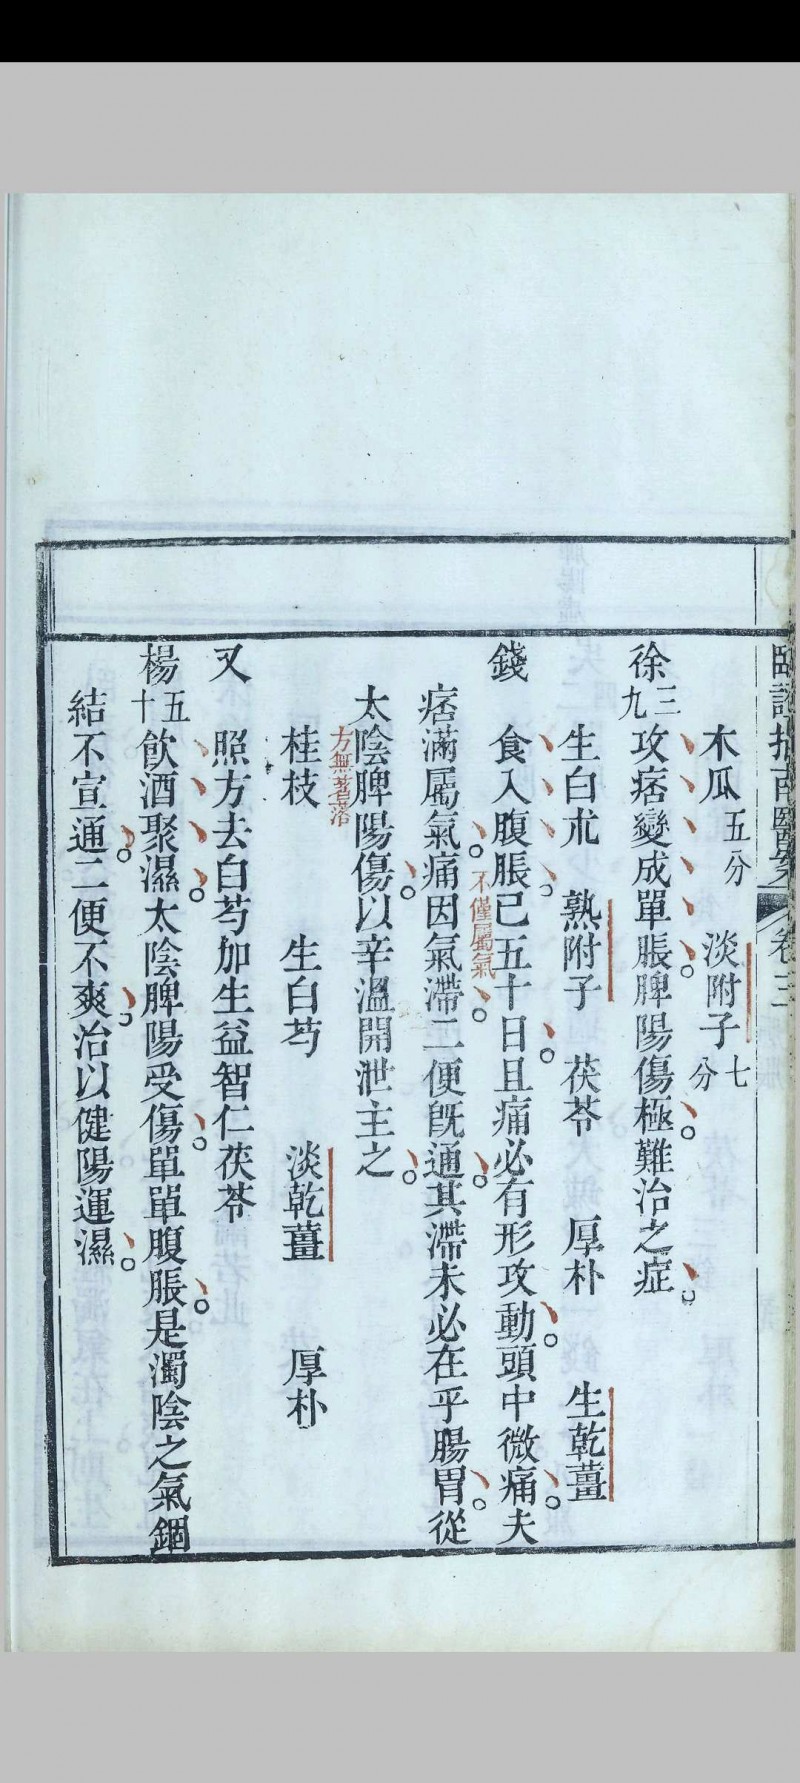 臨證指南醫案 卷三
木瓜五分 淡附子七分
徐三九 攻痞變成單脹脾陽傷極難治之症
生白朮 熟附子 茯苓 厚朴 生乾薑
錢 食入腹脹已五十日且痛必有形攻動頭中微痛夫
痞滿屬氣痛因氣滯二便既通其滯未必在乎腸胃從
不僅屬氣
太陰脾陽傷以辛溫開泄主之
方無著落
桂枝 生白芍 淡乾薑 厚朴
又 照方去白芍加生益智仁茯苓
楊五十 飲酒聚濕太陰脾陽受傷單單腹脹是濁陰之氣錮
結不宣通二便不爽治以健陽運濕